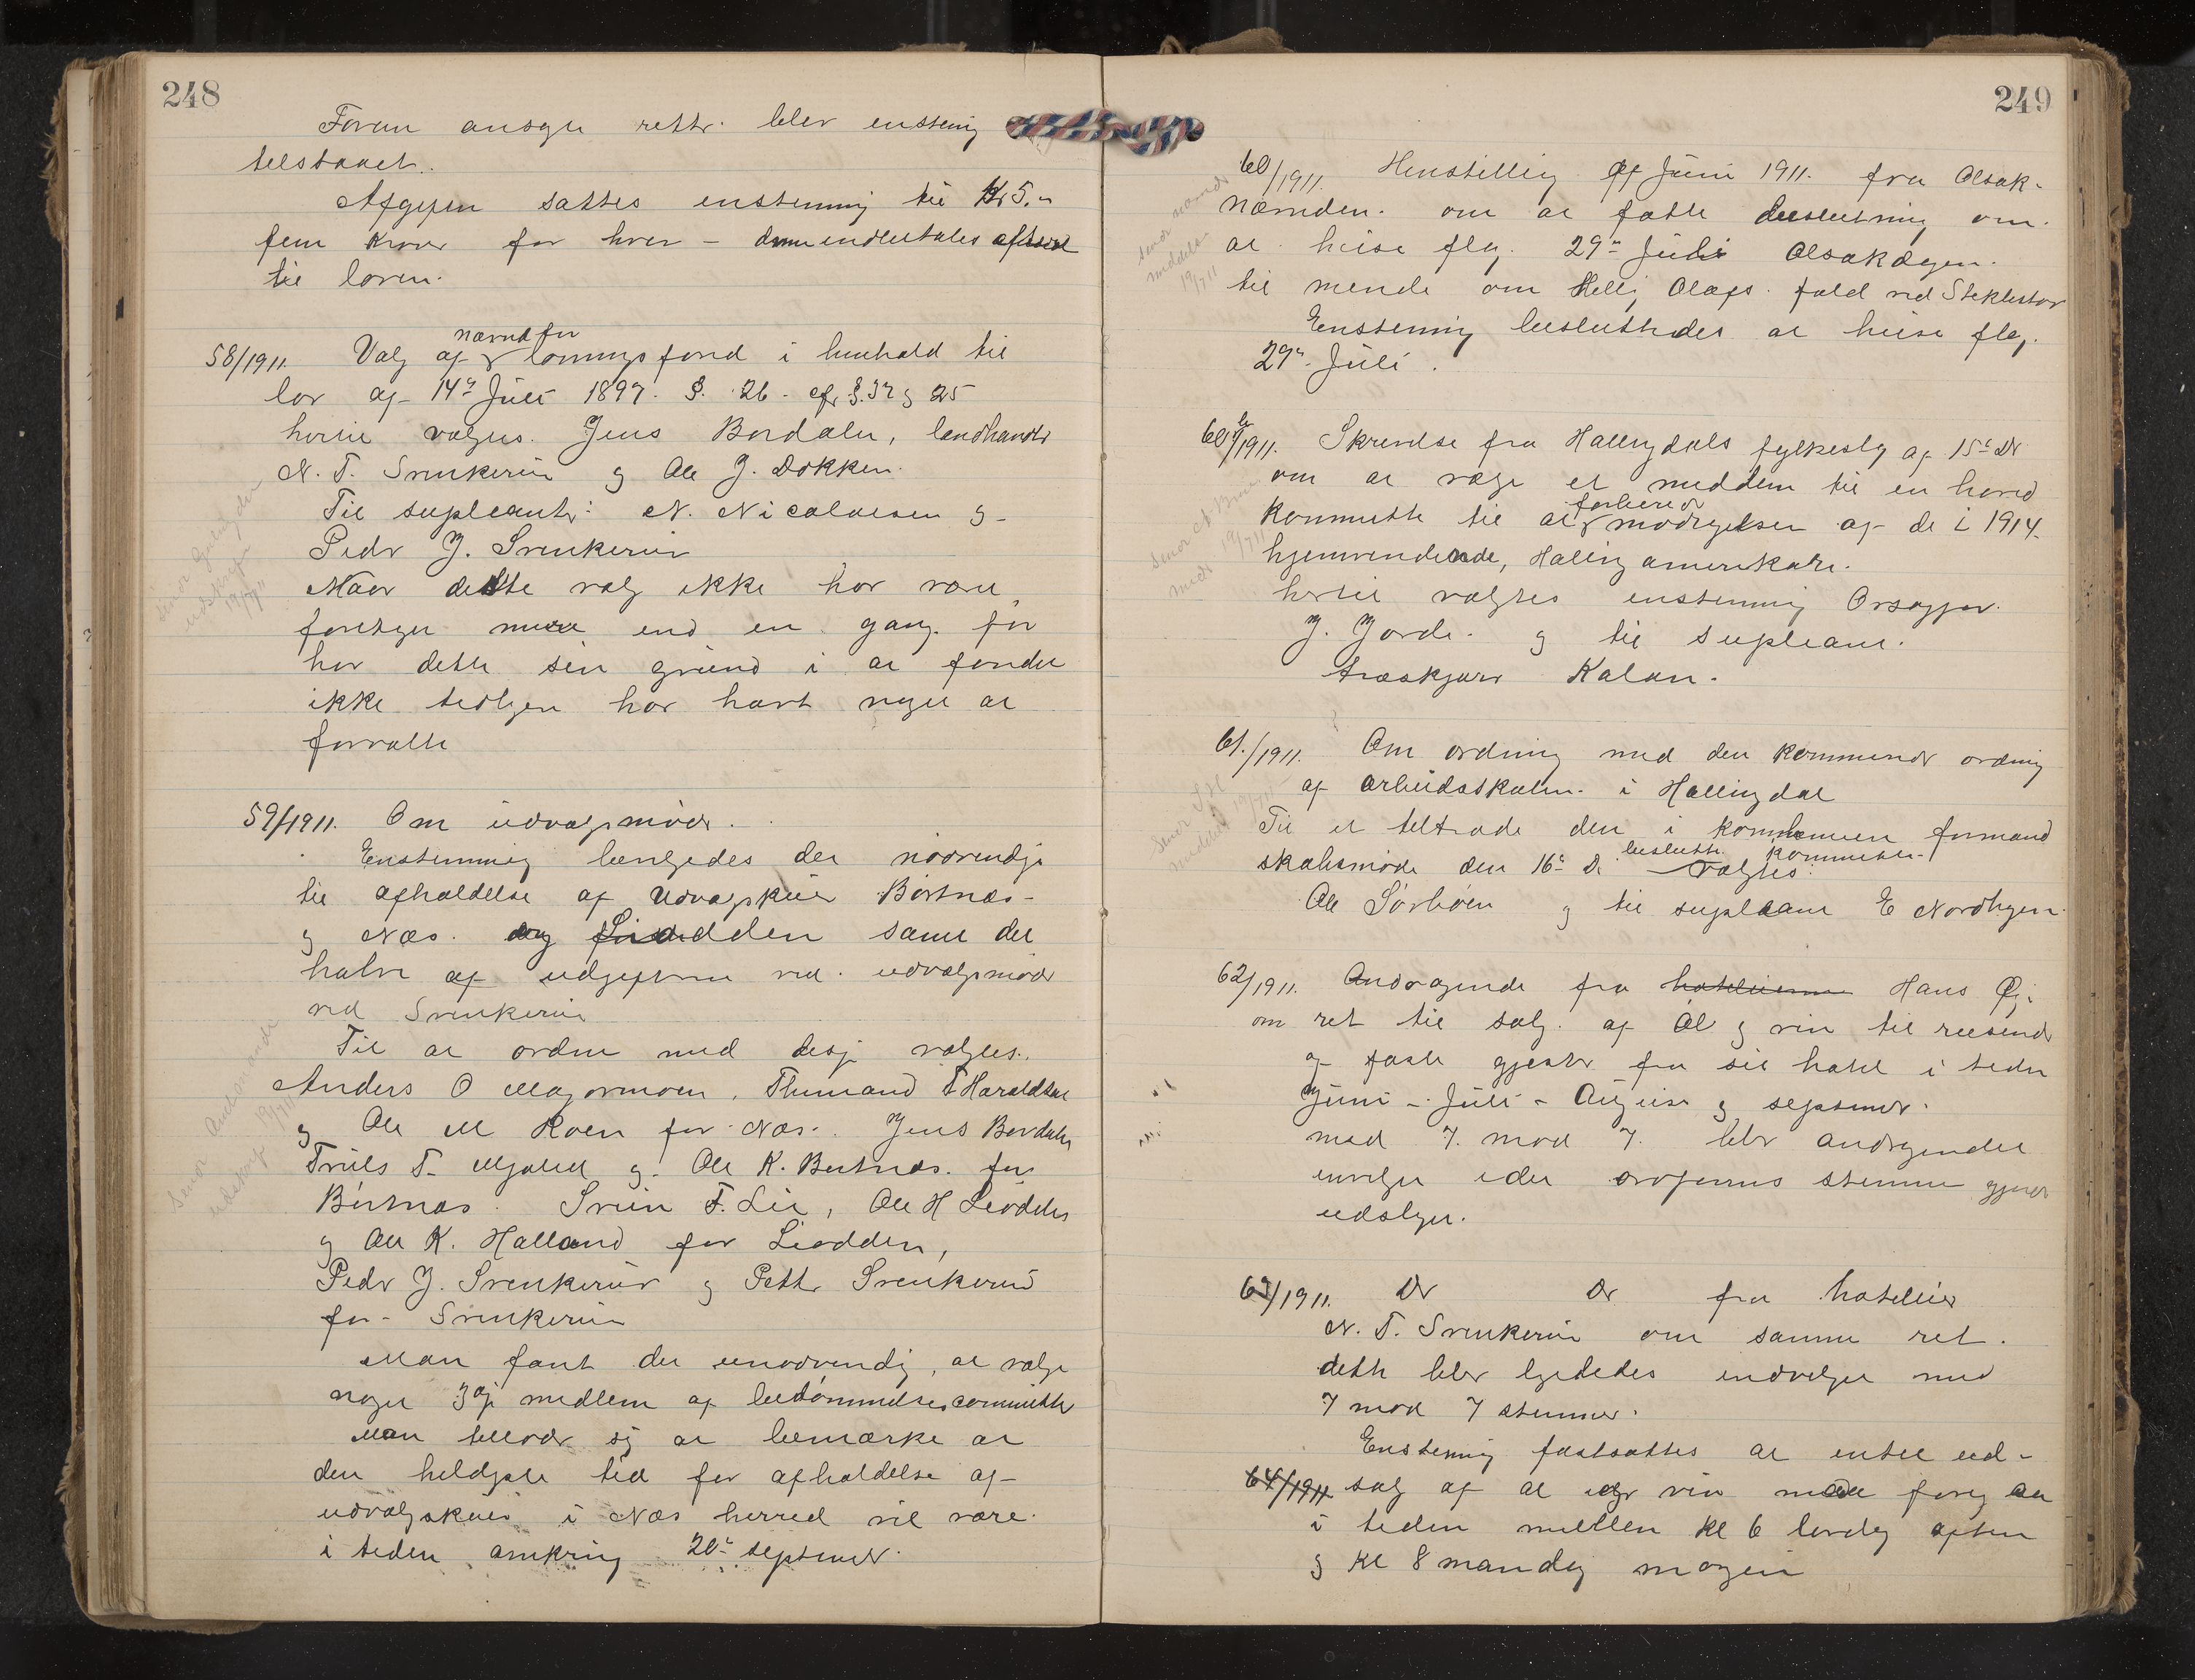 248
Foran ansøgte rett. blev enstemig
tilstaaet.
Afgiften sattes enstemmig til Kr 5.-
fem kroner for hver -
til loven.
58/1911. Valg af nævnd for lønningsfond i henhold til
lov af 14de Juli 1897. §. 26. cfr §. 32 og 25
hertil valgtes. Jens Bordalen, landhandl
N. T. Svenkerud og Ole J. Dokken.
Til supleanter: N. Nicolaisen og
Peder J. Svenkerud
Naar dette valg ikke har været
foretaget mere end en gang før
har dette sin grund i at fondet
ikke tidligere har havt noget at
forvalte
59/1911. Om udvalgsmøder.
Enstemmig bevilgedes det nødvendige
til afholdelse af Udvalgskuer Børtnes-
og Næs. og Liodden samt det
halve af udgifterne ved udvalgsmøde
ved Svenkerud
Til at ordne med disse valgtes.
Anders O Magormoen, Thinnand T Haraldset
og Ole M Roen for Næs. Jens Bordalen
Truls T. Mjølid og Ole K. Børtnæs for
Børtnæs. Svein F. Lie, Ole H Liodden
og Ole K. Halland for Liodden,
Peder J. Svenkerud og Petter Svenkerud
for Svenkerud
Man fant det unødvendig, at vælge
noget 3dje medlem af bedømmelsescommitte
Man tillader sig at bemærke at
den heldigste tid for afholdelse af
udvalgskuer i Næs herred vil være
i tiden omkring 20de september.
249
60/1911. Henstilling af Juni 1911. fra Olsok-
nævnden. om at fatte beslutning om
at heise flag. 29de Juli Olsokdagen.
til minde om Hellig Olafs fald ved Stiklestad
Enstemig besluttedes at heise flag.
29de Juli.
60b/1911. Skrivelse fra Hallingdals fylkeslag af 15de Ds
om at vælge et medlem til en hoved
kommitte til at forberede modtagelsen af de i 1914
hjemvendende, Halling amerikare.
hertil valgtes enstemmig Ordfører
J. Jorde. og til supleant.
træskjærer Kolan.
61./1911. Om ordning med den kommende ordning
af arbeidsskolen i Hallingdal
Til at tiltræde den i kommunen formand
skabsmøde den 16de Ds besluttede kommitee valgtes:
Ole Sørbøen og til supleant E Nordhagen
62/1911. Andragende fra hotelierne Hans Øi,
om ret til salg. af Øl og vin til reisende
og faste gjester fra sit hotel i tiden
Juni - Juli - August og september.
med 7. mod 7. blev andragendet
invilget idet ordførerens stemme gjorde
udslaget.
63/1911. Do Do fra hotelier
N. T. Svenkerud om samme ret.
dette blev ligeledes indvilget med
7 mod 7 stemmer.
Enstemig fastsattes at intet ud-
64/1911 salg af øl og vin maa foregaa
i tiden mellem kl 6 lørdag aften
og kl 8 mandag morgen